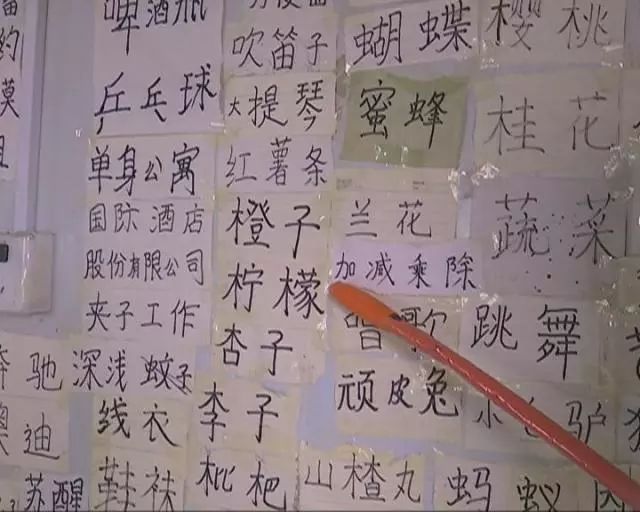 奔驰
奥迪
苏醒
啤酒瓶
乒乓球
单身公寓
国际酒店
股份有限公司
夹子工作
深浅 蚊子
线衣
鞋袜
吹笛子
大提琴
红薯条
橙子
柠檬
杏子
李子
枇杷
蝴蝶
蜜蜂
兰花
加减乘除
唱歌
顽皮兔
山楂丸
樱桃
桂花
蔬菜
跳舞
小 驴
蚂蚁